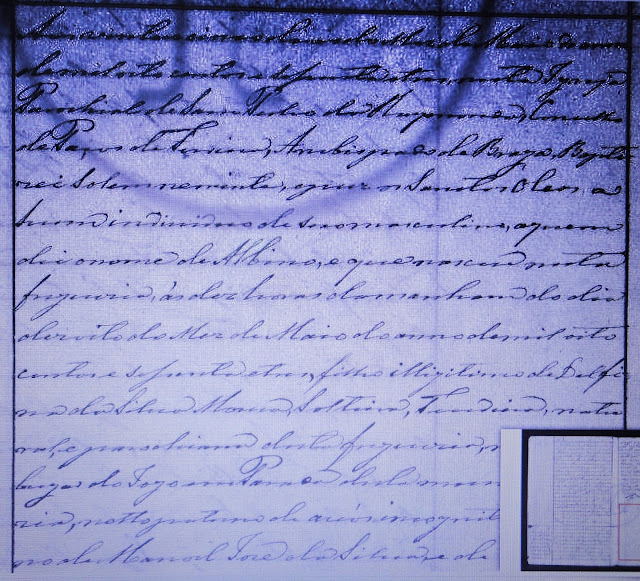 dias do Mez de Maio do anno
de mil oito centos e setenta e tres, nesta Igreja
Parochial de San Pedro da
de Paços de Ferreira, Arcebispado de Braga, Bapti
zei Solemnemente, e puz os Santos Oleos, a
hum individuo de sexo masculino, a quem
dei o nome de Albino, e que nasceu nesta
freguezia, ás dez horas da manham do dia
dezoito do Mez de Maio do anno de mil oito
centos e setenta e tres, filho illigitimo de Delfi
na da Silva Solteira, natu
ral, e parochiana desta freguezia,
lugar do desta
ria, netto paterno de avós incognit
no de Manoel José da Silva, e de